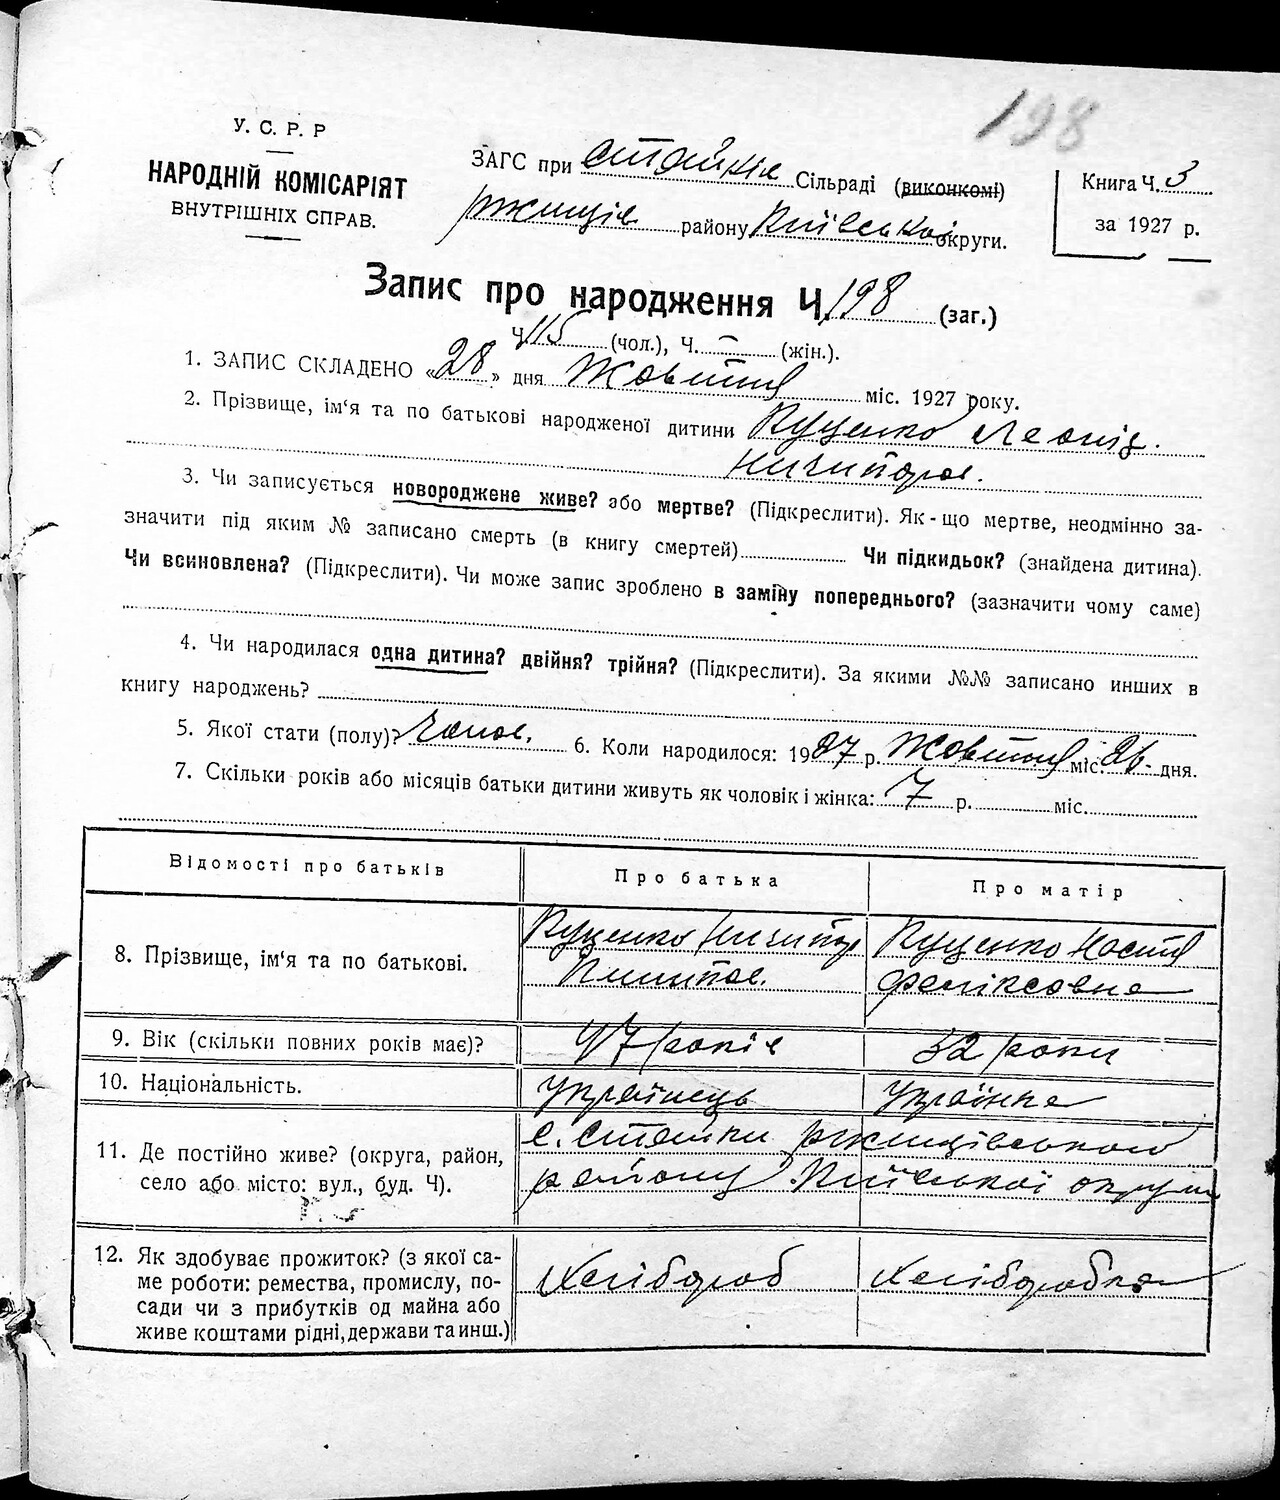 198
У. С. Р. Р
НАРОДНІЙ КОМІСАРІЯТ
ВНУТРІШНІХ СПРАВ.
ЗАГС при Стайків Сільраді (виконкомі)
Ржищів району Київської округи.
Книга Ч. 3
за 1927 р.
Запис про народження Ч. 198 (заг.)
Ч 115 (чол.), Ч. – (жін.).
1. ЗАПИС СКЛАДЕНО «28» дня Жовтня міс. 1927 року.
2. Прізвище, ім'я та по батькові народженої дитини Куценко Леонід.
Ничипоров.
3. Чи записується новороджене живе? або мертве? (Підкреслити). Як-що мертве, неодмінно за-
значити під яким № записано смерть (в книгу смертей) Чи підкидьок? (знайдена дитина).
Чи всиновлена? (Підкреслити). Чи може запис зроблено в заміну попереднього? (зазначити чому саме)
4. Чи народилася одна дитина? двійня? трійня? (Підкреслити). За якими №№ записано инших в
книгу народжень?
5. Якої стати (полу)? Чолов. 6. Коли народилося: 1927 р. Жовтня міс. 26 - дня.
7. Скільки років або місяців батьки дитини живуть як чоловік і жінка: 7 р. міс.
Відомості про батьків Про батька Про матір
8. Прізвище, ім'я та по батькові. Куценко Ничипор Куценко Настя
Феліксовна
9. Вік (скільки повних років має)? 47 років 32 роки
10. Національність. Українець Українка
11. Де постійно живе? (округа, район, с. Стайки Ржищівського
село або місто: вул., буд. Ч). району Київської округи
12. Як здобуває прожиток? (з якої са-
ме роботи: ремества, промислу, по- Хлібороб Хліборобка
сади чи з прибутків од майна або
живе коштами рідні, держави та инш.)